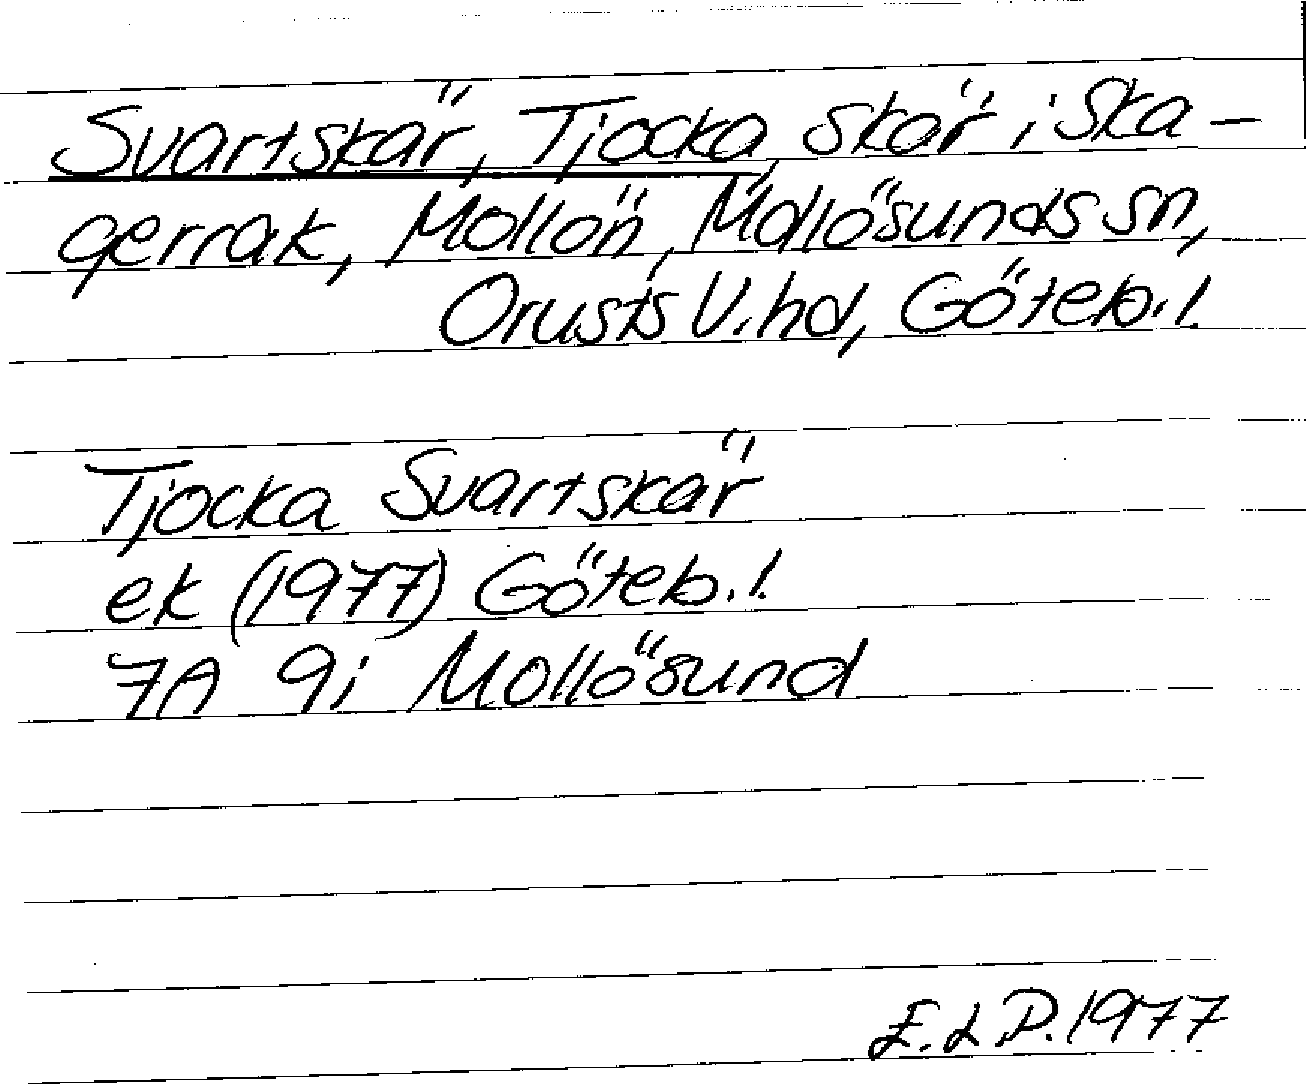 Svartskär, Tjocka, skär i Ska-
gerrak, Mollön, Mollösunds sn,
Orusts V.hd, Göteb.l.
Tjocka Svartskär
ek (1977) Göteb.l.
7A 9i Mollösund
E.L.P. 1977